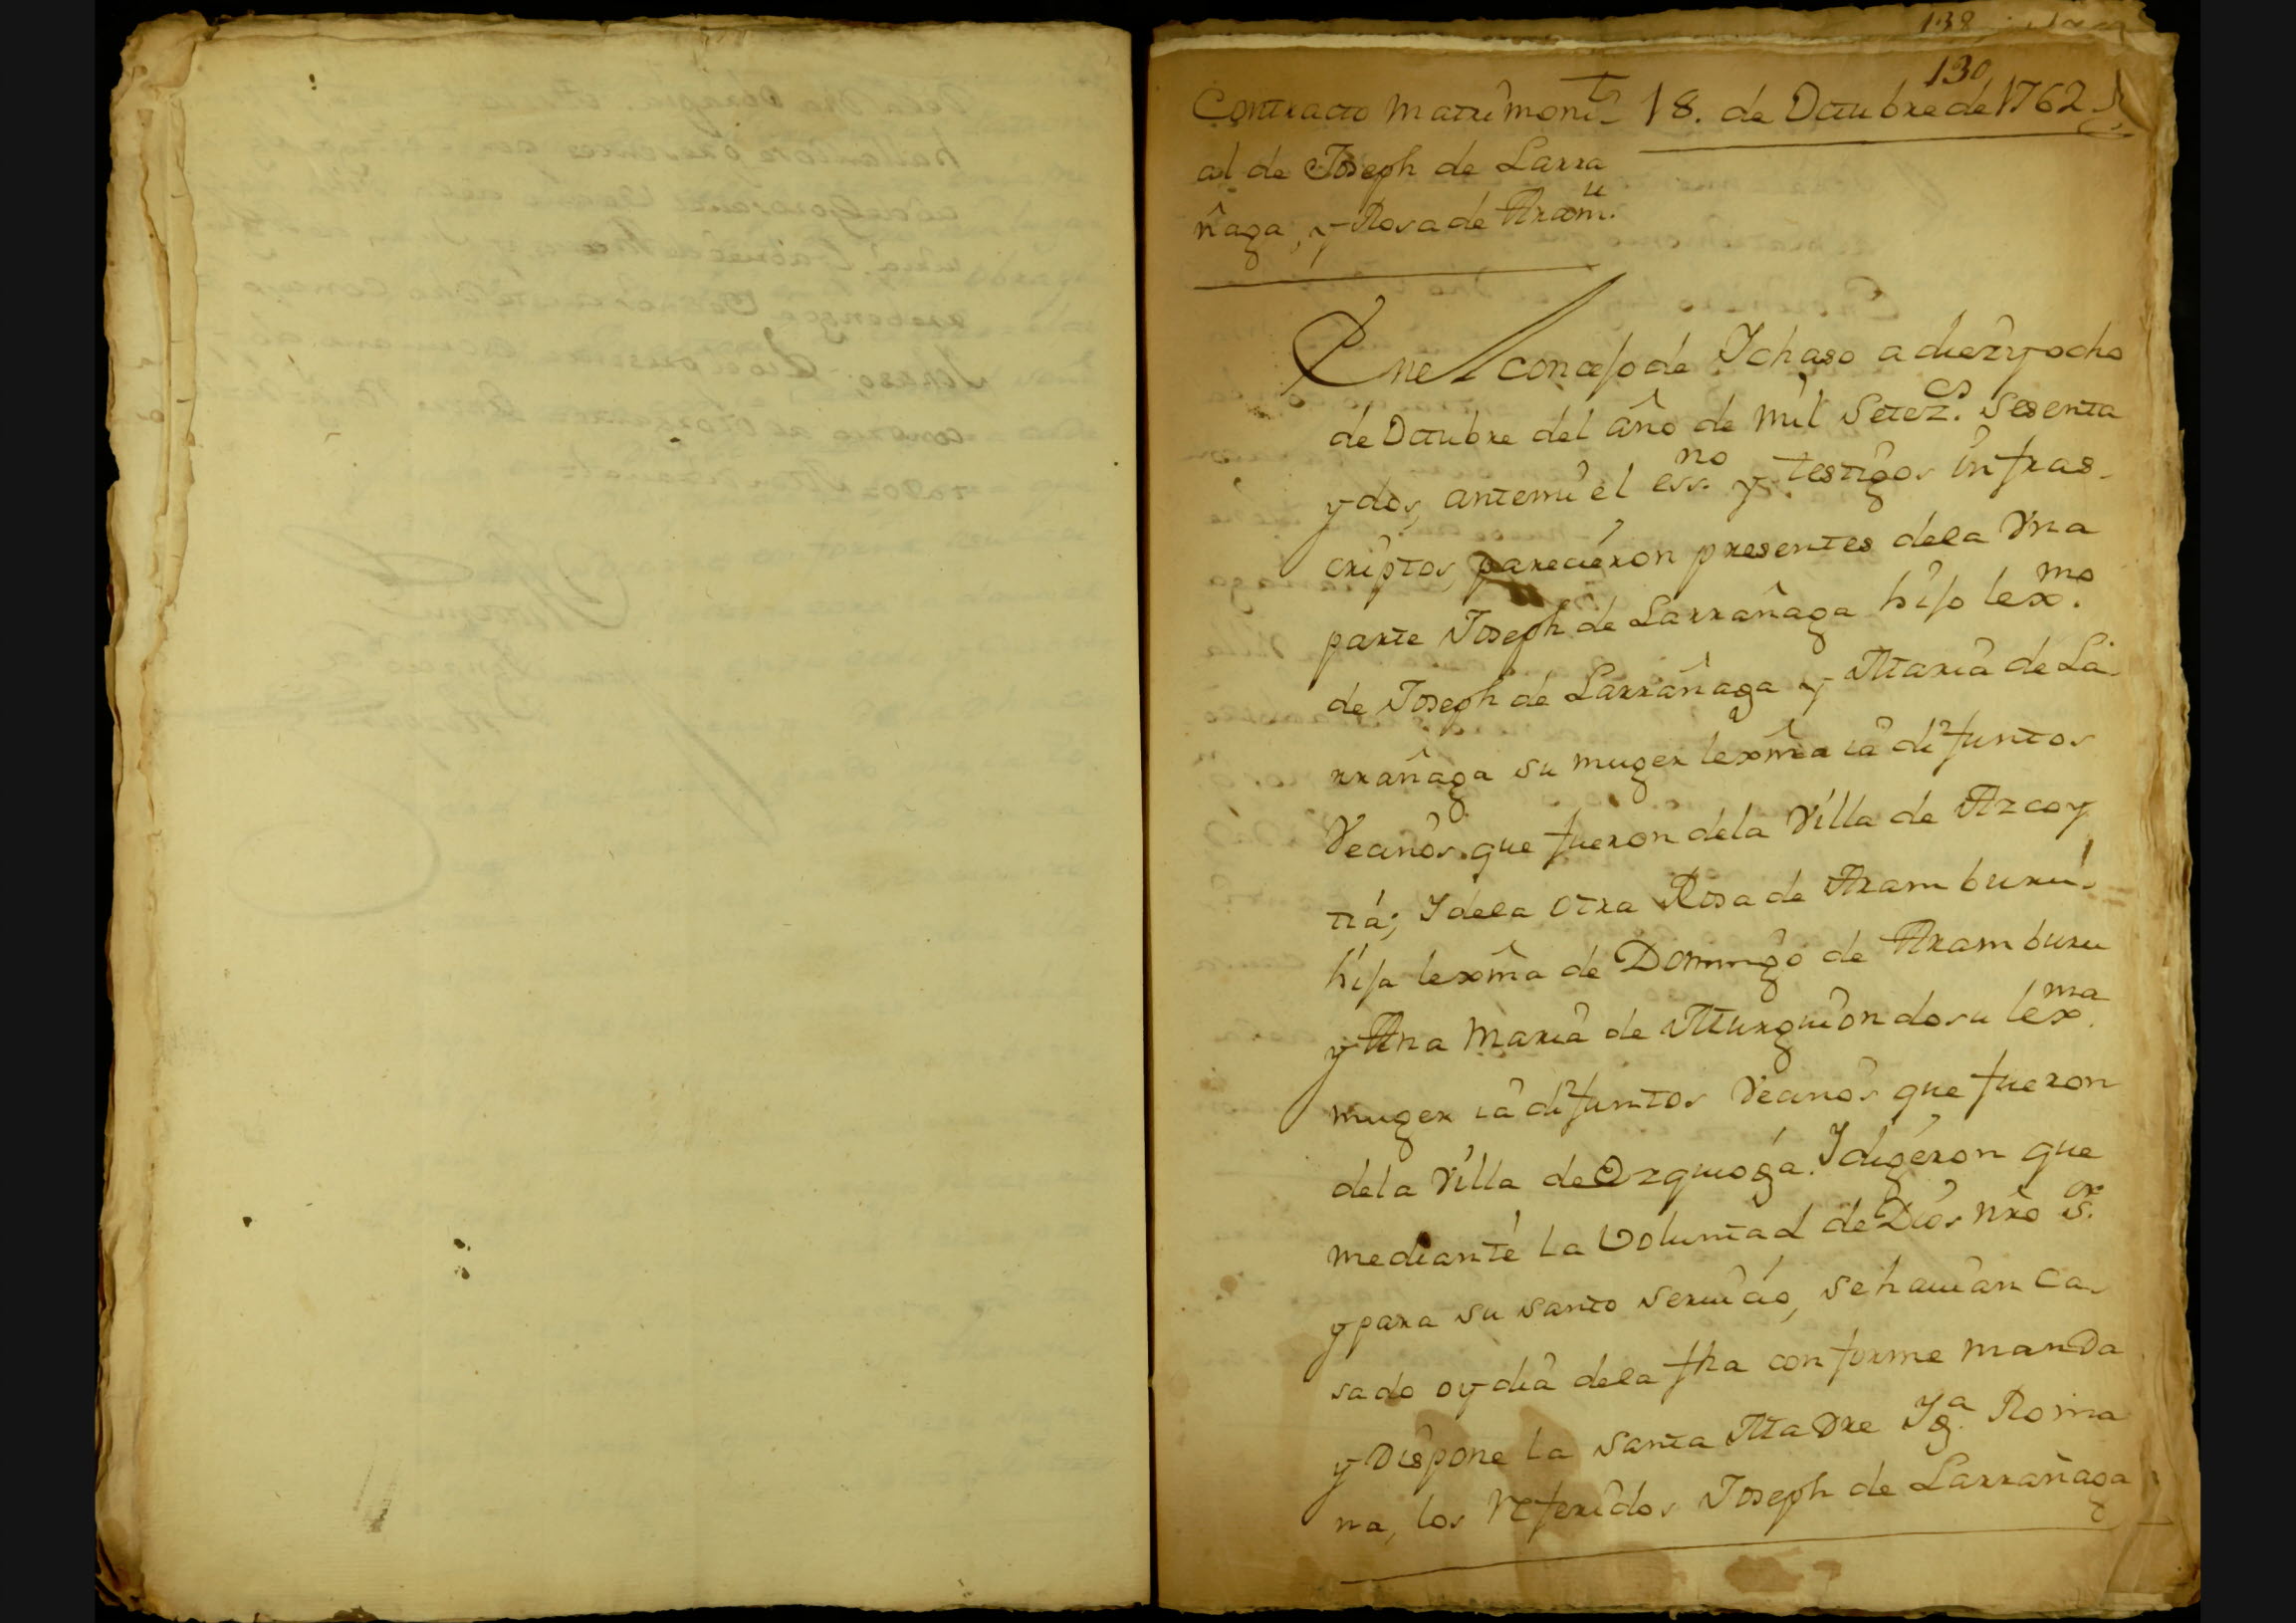 138
130
Contracto Matrimoni- 18. de Octubre de 1762
al de Joseph de Larra
ñaga, y Rosa de Aram.u
En el concejo de Ichaso a diez y ocho
de Octubre del año de mil Setez.os Sesenta
y dos, antemi el ess.no y testigos infras-
criptos, parecieron presentes dela Vna
parte Joseph de Larrañaga hijo lex.mo
de Joseph de Larrañaga y Maria de La-
rrañaga su muger lexma ia difuntos
Vecinos que fueron dela Villa de Azcoy
tia; Y dela otra Rosa de Aramburu-
hija lexma de Domingo de Aramburu
y Ana Maria de Murguiondo su lex.ma
muger ia difuntos Vecinos que fueron
dela Villa de Ezquioga. Y digeron que
mediante la Voluntad de Dios nro S.or
y para su santo seruicio, se hauian ca-
sado oy dia dela fha conforme manda
y Dispone la santa Madre Yg.a Roma
na, los referidos Joseph de Larrañaga